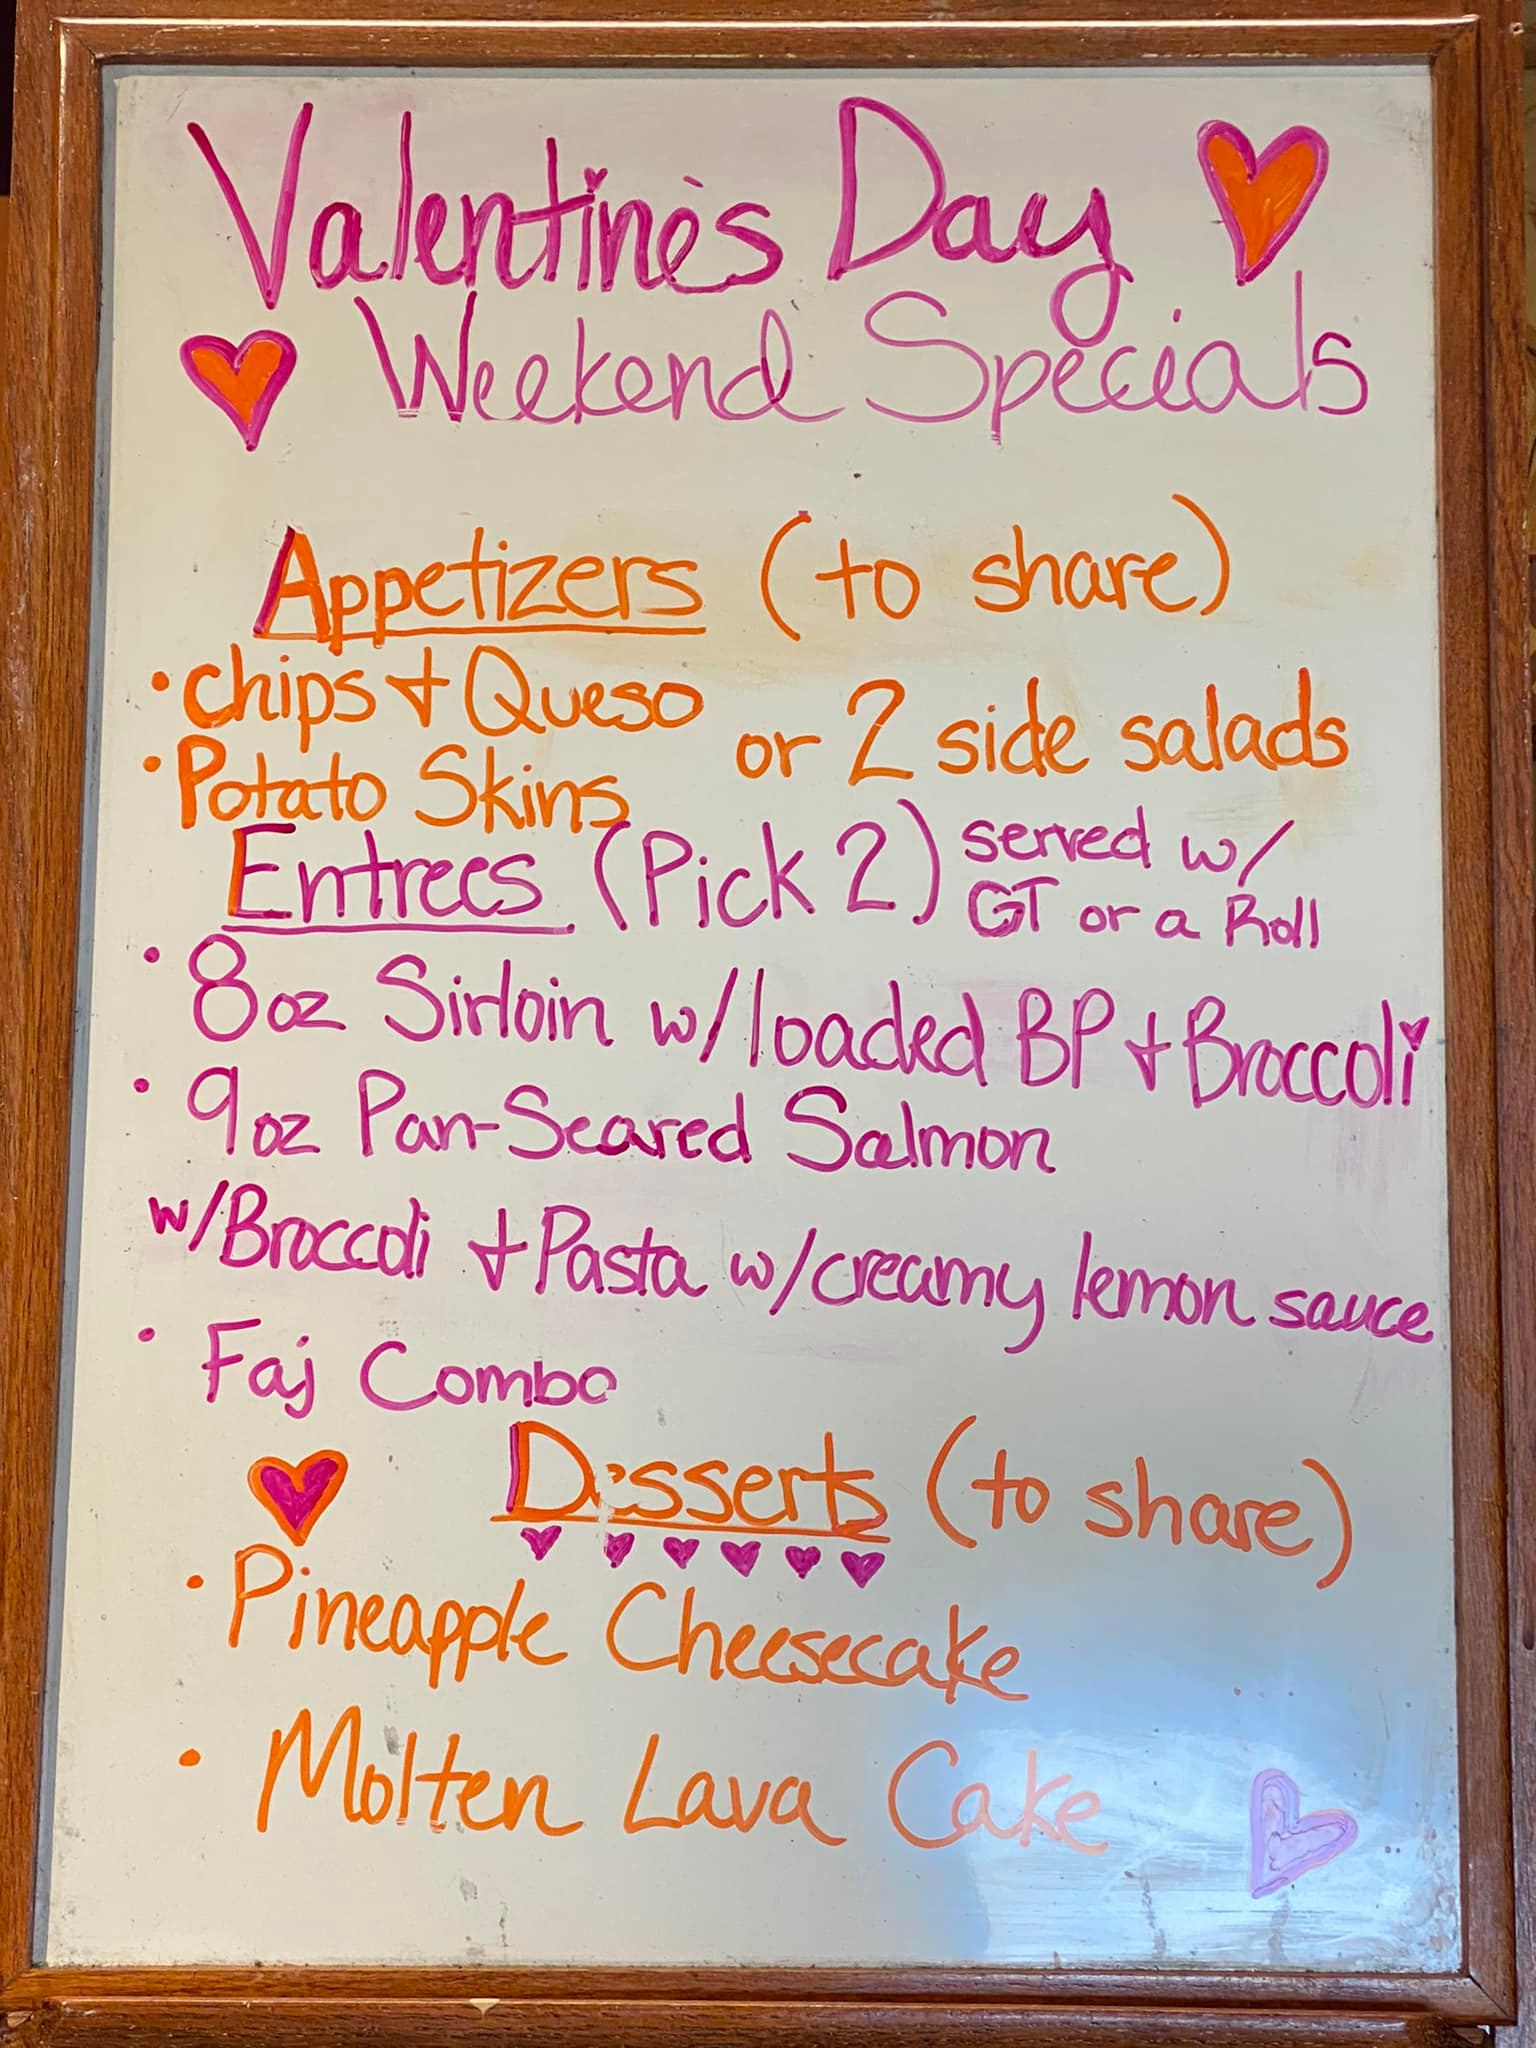 Valentine's Day
Weekend Specials
Appetizers (to share)
• Chips + Queso
• Potato Skins
or 2 side salads
Entrees (Pick 2) served w/
GT or a Roll
• 8oz Sirloin w/loaded BP + Broccoli
• 9oz Pan-Seared Salmon
w/Broccoli + Pasta w/creamy lemon sauce
• Faj Combo
Desserts (to share)
• Pineapple Cheesecake
• Molten Lava Cake